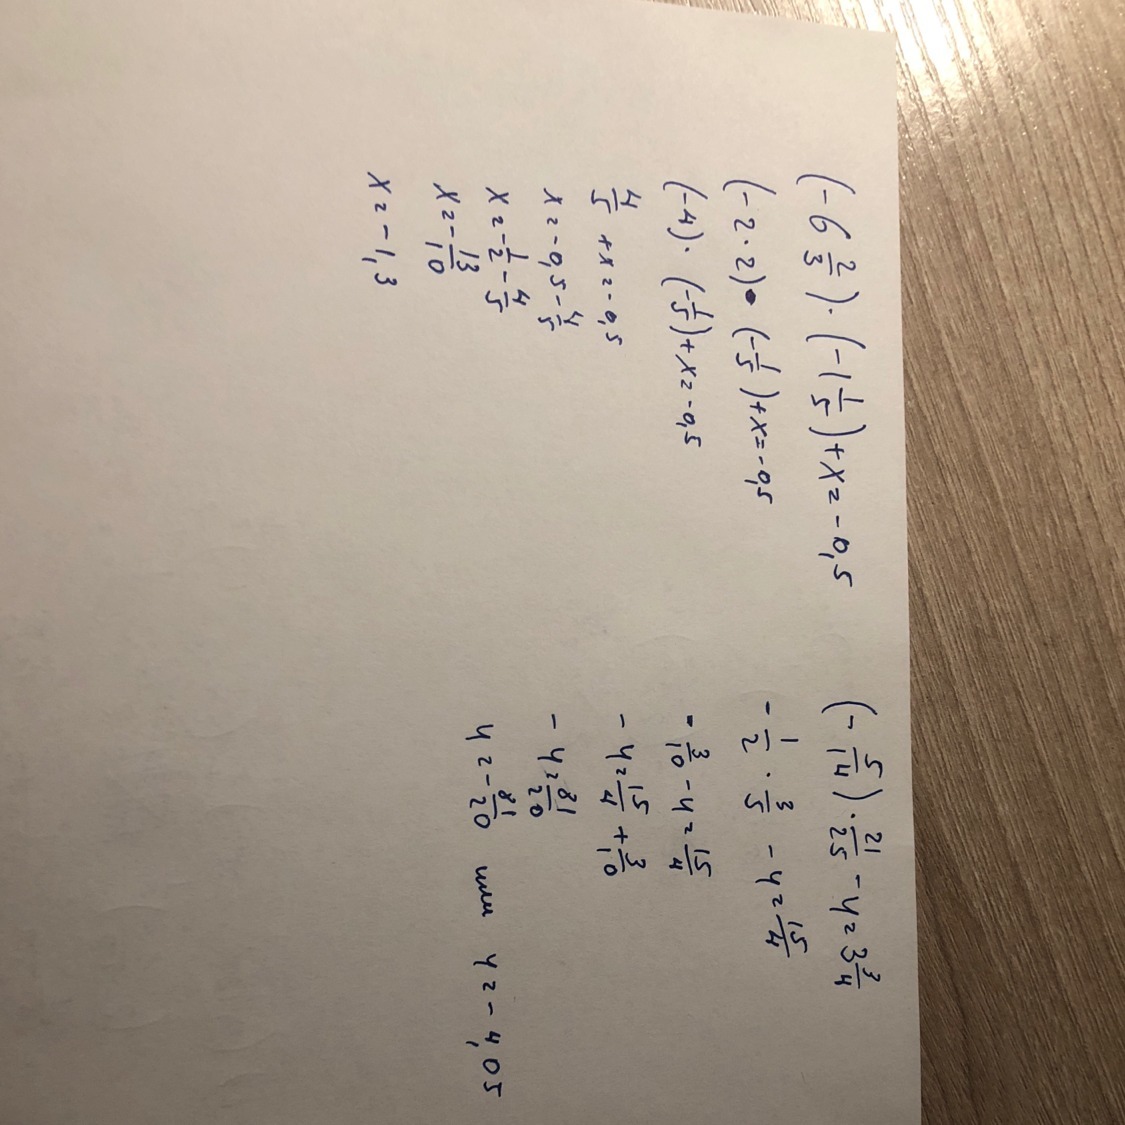 (-6 2/3) · (-1 1/5) + x = -0,5
(-2·2) · (-1/5) + x = -0,5
(-4) · (-1/5) + x = -0,5
4/5 + x = -0,5
x = -0,5 - 4/5
x = -1/2 - 4/5
x = -13/10
x = -1,3
(-5/14) · 21/25 - y = 3 3/4
-1/2 · 3/5 - y = 15/4
-3/10 - y = 15/4
-y = 15/4 + 3/10
-y = 81/20
y = -81/20 или y = -4,05